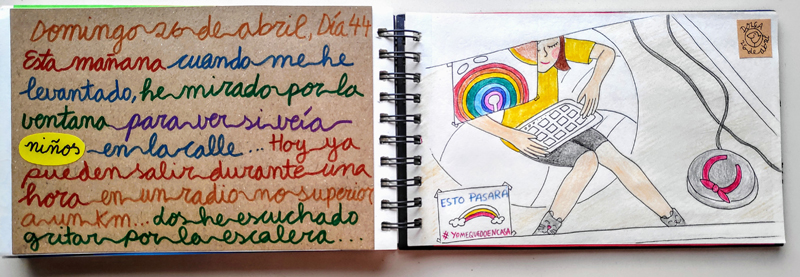 Domingo 26 de abril, Día 44
Esta mañana cuando me he
levantado, he mirado por la
ventana para ver si veía
niños en la calle... Hoy ya
pueden salir durante una
hora en un radio no superior
a un km... dos he escuchado
gritar por la escalera...
ESTO PASARÁ
#YOMEQUEDOENCASA